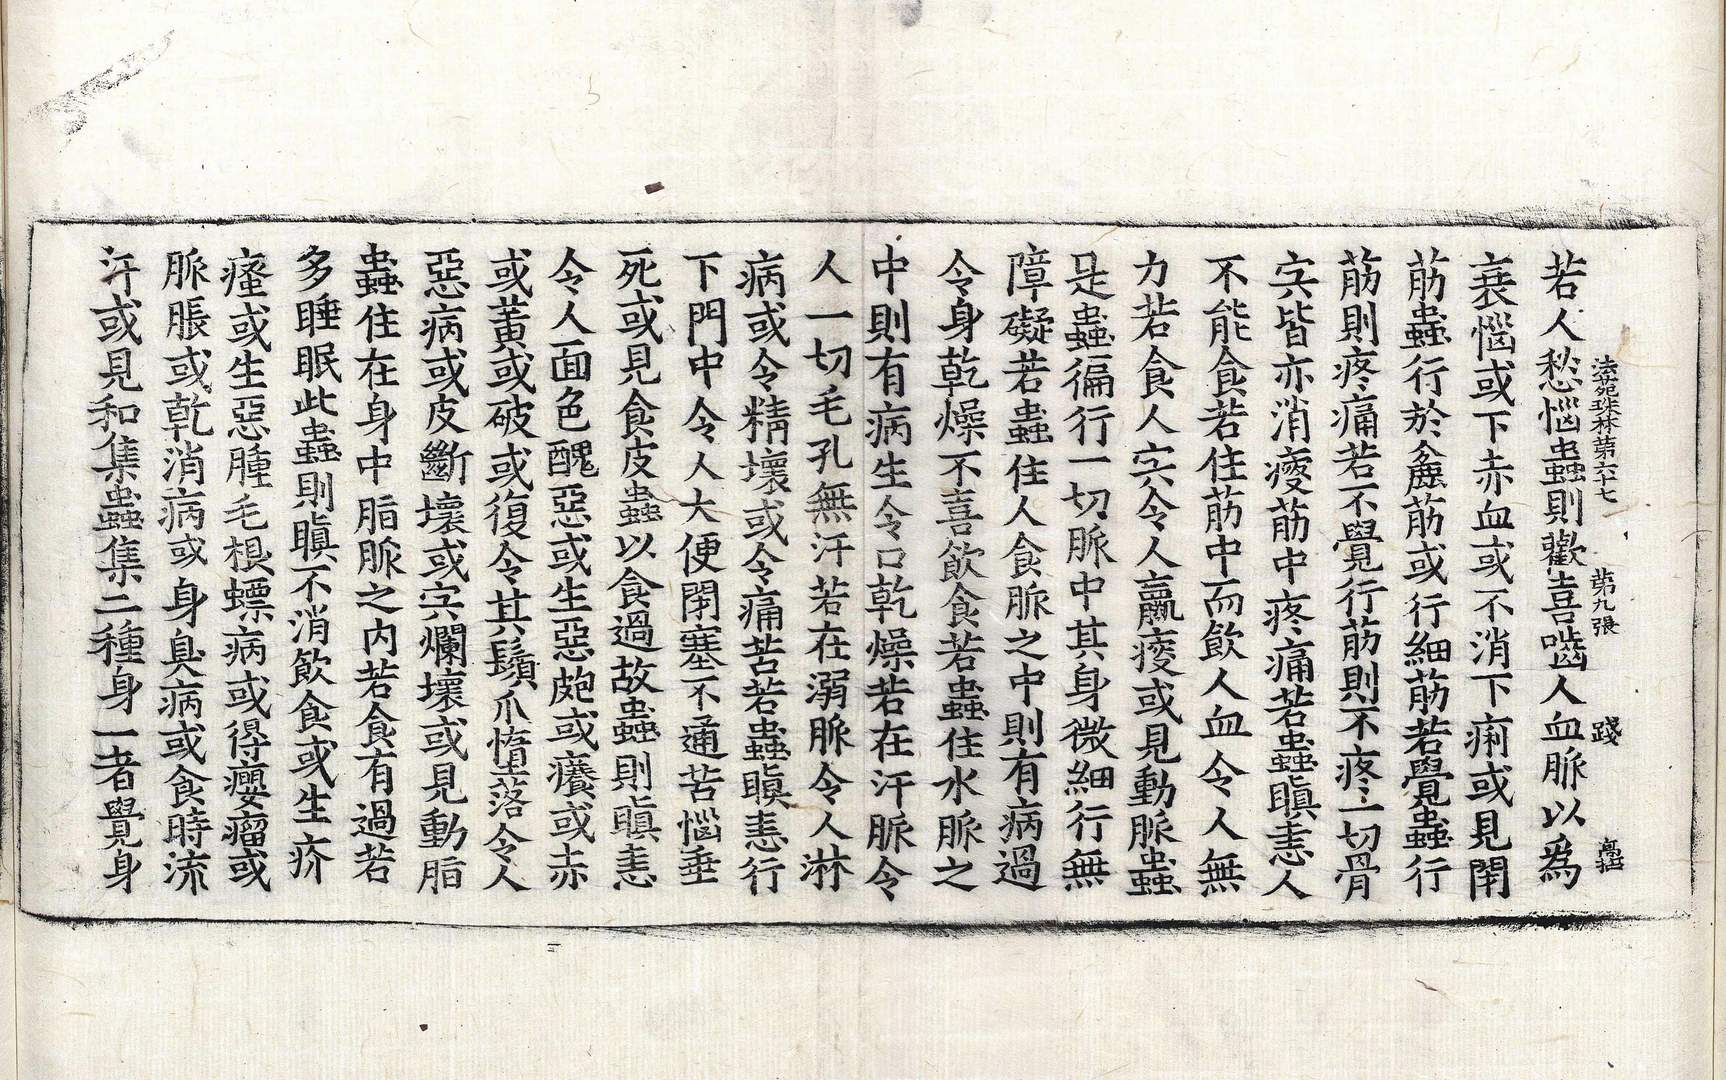 法苑珠林第六十七　第九張　踐
若人愁惱蟲則歡喜嚙人血脈以爲
衰惱或下赤血或不消下痢或見閙
筋蟲行於麁筋或行細筋若覺蟲行
筋則疼痛若不覺行筋則不疼一切骨
宍皆亦消痠筋中疼痛若蟲瞋恚人
不能食若住筋中而飲人血令人無
力若食人宍令人羸痠或見動脈蟲
是蟲徧行一切脈中其身微細行無
障礙若蟲住人食脈之中則有病過
令身乾燥不喜飲食若蟲住水脈之
中則有病生令口乾燥若在汗脈令
人一切毛孔無汗若在溺脈令人淋
病或令精壞或令痛苦若蟲瞋恚行
下門中令人大便閉塞不通苦惱垂
死或見食皮蟲以食過故蟲則瞋恚
令人面色醜惡或生惡皰或癢或赤
或黃或破或復令其鬚爪墮落令人
惡病或皮斷壞或宍爛壞或見動脂
蟲住在身中脂脈之內若食有過若
多睡眠此蟲則瞋不消飲食或生疥
瘙或生惡腫毛根螵病或得癭瘤或
脈脹或乾消病或身臭病或食時流
汗或見和集蟲集二種身一者覺身